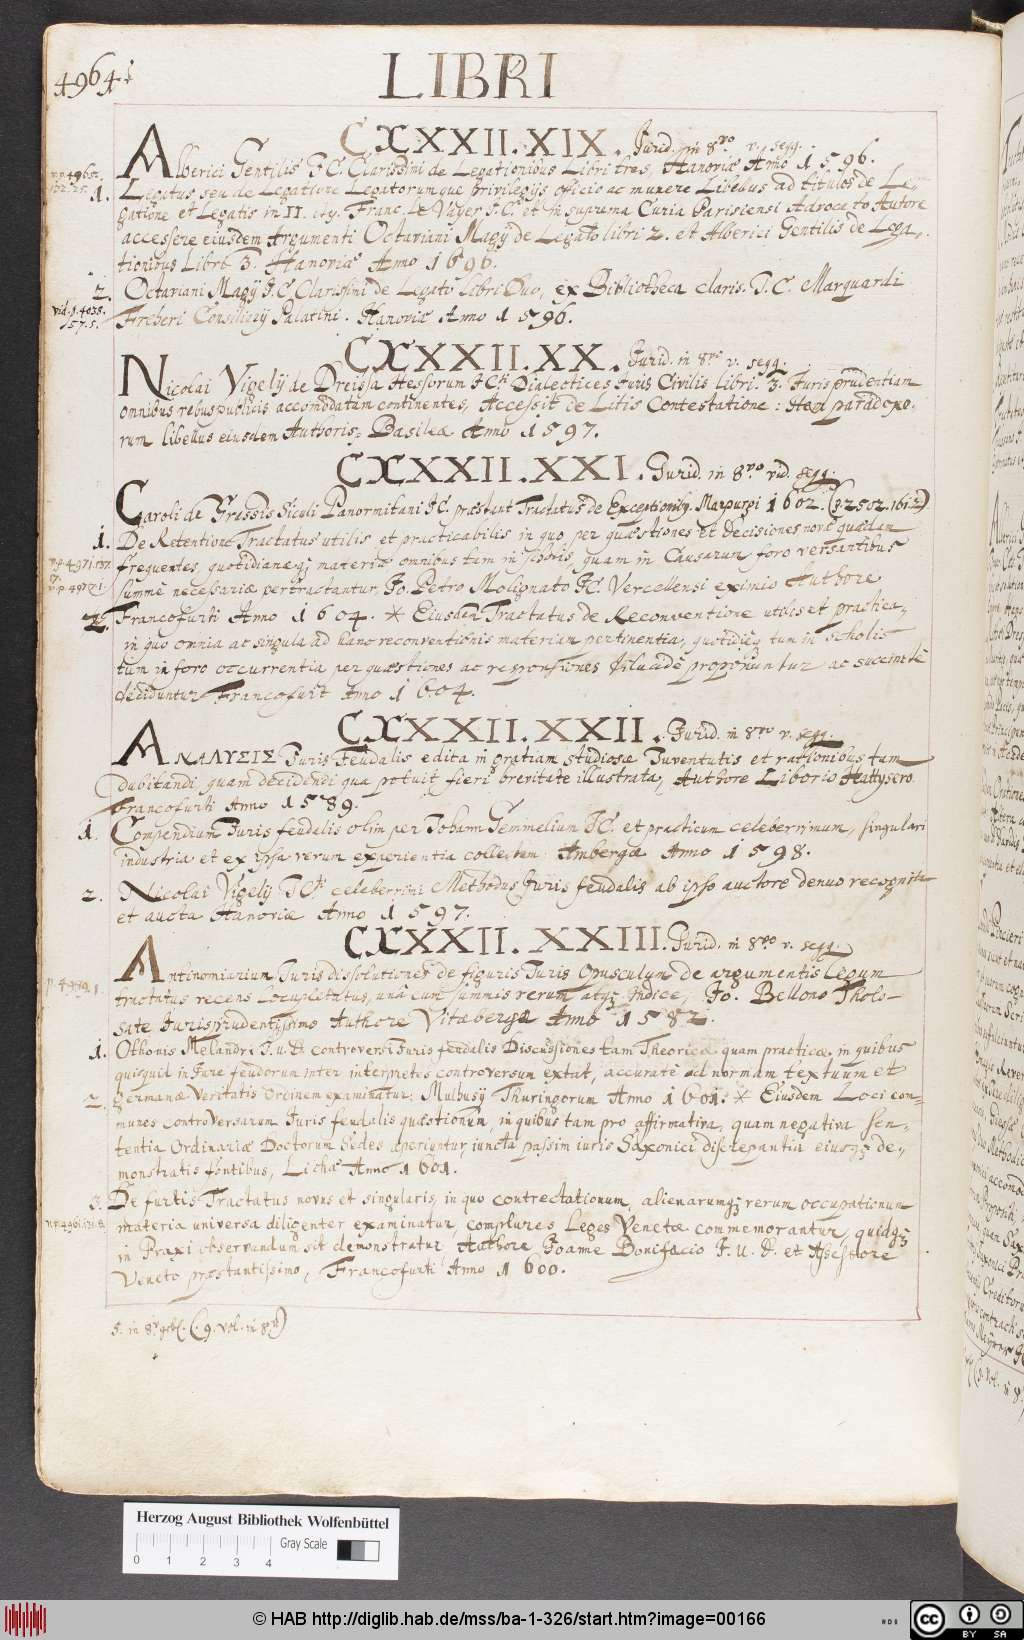 4964.
LIBRI
CXXXII. XIX. Jurid. in 8vo v. segg.
Alberici Gentilis J C. Clarissimi de Legationibus Libri tres, Hanoviæ Anno 1596.
1. Legatus seu de Legatione Legatorumque privilegijs officio ac munere Libellus ad titulos de Le-
gatione et Legatis in II. Franc. Le Vayer J. C. et in suprema Curia Parisiensi Advocato Autore
accessere eiusdem Argumenti Octaviani Magij de Legato libri 2. et Alberici Gentilis de Lega-
tionibus Libri 3. Hanoviæ Anno 1696.
2. Octaviani Magij J C Clarissimi de Legato libri Duo, ex Bibliotheca claris. J. C. Marquardi
vid. p. 4038.
57.5.
Freheri Consiliarij Palatini. Hanoviæ Anno 1596.
CXXXII. XX. Jurid. in 8vo v. segg.
Nicolai Vigelij de Dreissa Hessorum JCti Dialectices Juris Civilis libri. 3. Jurisprudentiam
omnibus rebuspublicis accomodatam continentes, Accessit de Litis Contestatione: Item paradoxo-
rum libellus eiusdem Authoris, Basileæ Anno 1597.
CXXXII. XXI. Jurid. in 8vo vid. segg.
Caroli de Grassis Siculi Panormitani JC. præstant Tractatus de Exceptionibg. Marpurgi 1602.
1. De Retentione Tractatus utilis et practicabilis in quo per quæstiones et decisiones novæ quædam
frequentes, quotidianæq; materiæ omnibus tam in scholis, quam in Causarum foro versantibus
summe necessariæ pertractantur, Jo. Petro Molignato JC. Vercellensi eximio Authore
2. Francofurti Anno 1604. * Eiusdem Tractatus de Reconventione utilis et practica,
in quo omnia ac singula ad hanc reconventionis materiam pertinentia, quotidieq tum in scholis
tum in foro occurrentia per quæstiones ac responsiones dilucide proponuntur ac succinte
deciduntur Francofurt Anno 1604.
CXXXII. XXII. Jurid. in 8vo v. segg.
ΑΝΑΛΥΣΙΣ Juris Feudalis edita in gratiam studiosæ Juventutis et rationibus tam
Dubitandi, quam decidendi qua potuit fieri brevitate illustrata, Authore Liborio
Francofurti Anno 1589.
1. Compendium Juris feudalis olim per Johann Gemmelium JC. et practicum celeberrimum, singulari
industria et ex ipsa rerum experientia collectum. Ambergæ Anno 1598.
2. Nicolai Vigelij JCti celeberrimi Methodus Juris feudalis ab ipso auctore denuo recognita
et aucta Hanoviæ Anno 1597.
CXXXII. XXIII. Jurid. in 8vo v. segg.
Antinomiarum Juris dissolutiones de figuris Juris Opusculum de argumentis Legum
tractatus recens locupletatus, una cum summis rerum atq; Indice, Jo. Bellono Tholo-
sate Jurisprudentissimo Authore Vitæbergæ Anno 1582.
1. Othonis Melandri J. u. D. controversi Juris feudalis Discussiones tam Theoricæ quam practicæ, in quibus
quicquid in Jure feudorum inter interpretes controversum extat, accurate ad normam textuum et
2. Germanæ Veritatis Ordinem examinatur: Mulhusij Thuringorum Anno 1601. * Eiusdem Loci com-
munes controversarum Juris feudalis quæstionum, in quibus tam pro affirmativa, quam negativa sen-
tentia Ordinariæ Doctorum Sedes aperiuntur, iuncta passim iuris Saxonici discrepantia eiusq; de-
monstratis fontibus, Lichæ Anno 1601.
3. De furtis Tractatus novus et singularis, in quo contrectationum, alienarumq; rerum occupationum
materia universa diligenter examinatur, complures Leges Venetæ commemorantur, quidq;
in Praxi observandum sit demonstratur, Authore Joanne Bonifacio J. U. D. et Assessore
Veneto præstantissimo, Francofurti Anno 1600.
5. in 8vo (9. vol. in 8vo)
Herzog August Bibliothek Wolfenbüttel
Gray Scale
0 1 2 3 4
© HAB http://diglib.hab.de/mss/ba-1-326/start.htm?image=00166
HAB
cc BY SA